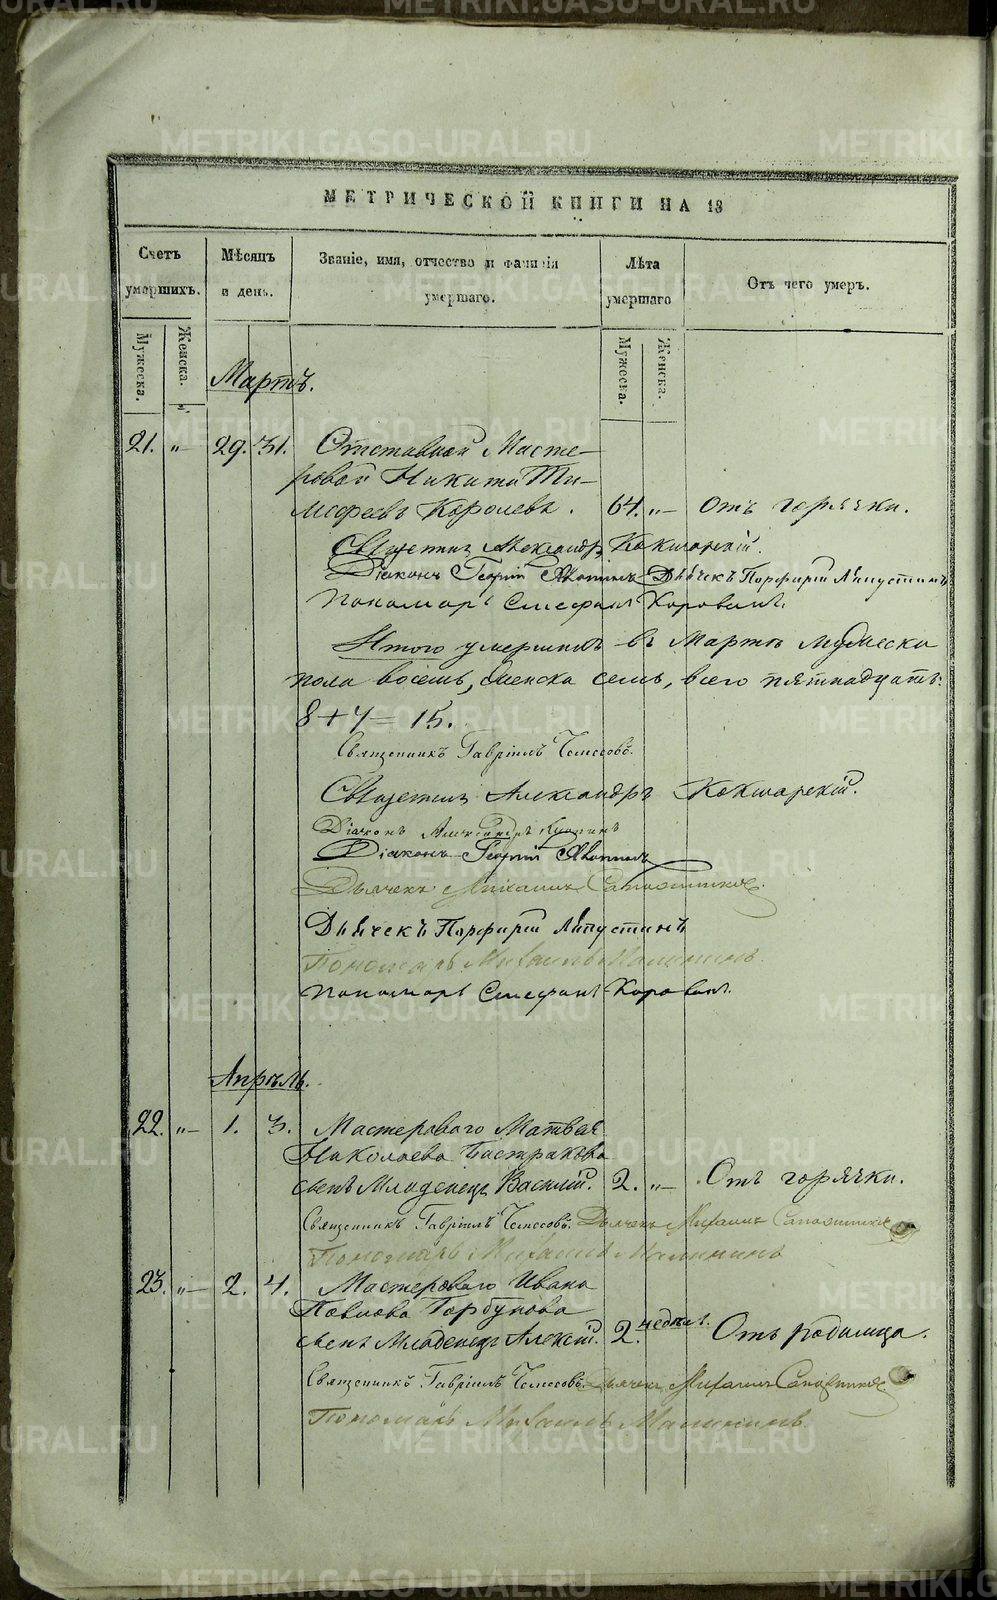 МЕТРИЧЕСКОЙ КНИГИ НА 18
Счетъ умершихъ.
Мѣсяцъ и день.
Званіе, имя, отчество и фамилія умершаго.
Лѣта умершаго
Отъ чего умеръ.
Мужеска.
Женска.
Мужеска.
Женска.
Мартъ.
21. "– 29. 31. Отставной Масте-
ровой Никита Ти-
мофеевъ Королевъ. 64. "– Отъ горячки.
Священникъ Александръ Кокшарскій.
Діаконъ Георгій Дьячекъ Порфирій Ляпустинъ
Пономарь Стефанъ Короваевъ.
Итого умершихъ въ Мартѣ Мужеска
пола восемь, женска семь, всего пятнадцать.
8+7=15.
Священникъ Гавріилъ
Священникъ Александръ Кокшарскій.
Діаконъ Александръ
Діаконъ Георгій
Дьячекъ Михаилъ Сапожниковъ.
Дьячекъ Порфирій Ляпустинъ
Пономарь Михаилъ Малининъ.
Пономарь Стефанъ
Апрѣль.
22. "– 1. 3. Мастероваго Матвея
Николаева
сынъ Младенецъ Василій. 2. "– Отъ горячки.
Священникъ Гавріилъ Дьячекъ Михаилъ Сапожниковъ
Пономарь Михаилъ Малининъ
23. "– 2. 4. Мастероваго Ивана
Павлова Горбунова
сынъ Младенецъ Алексій. 2. недѣл. Отъ родимца.
Священникъ Гавріилъ Дьячекъ Михаилъ Сапожниковъ
Пономарь Михаилъ Малининъ
METRIKI.GASO-URAL.RU